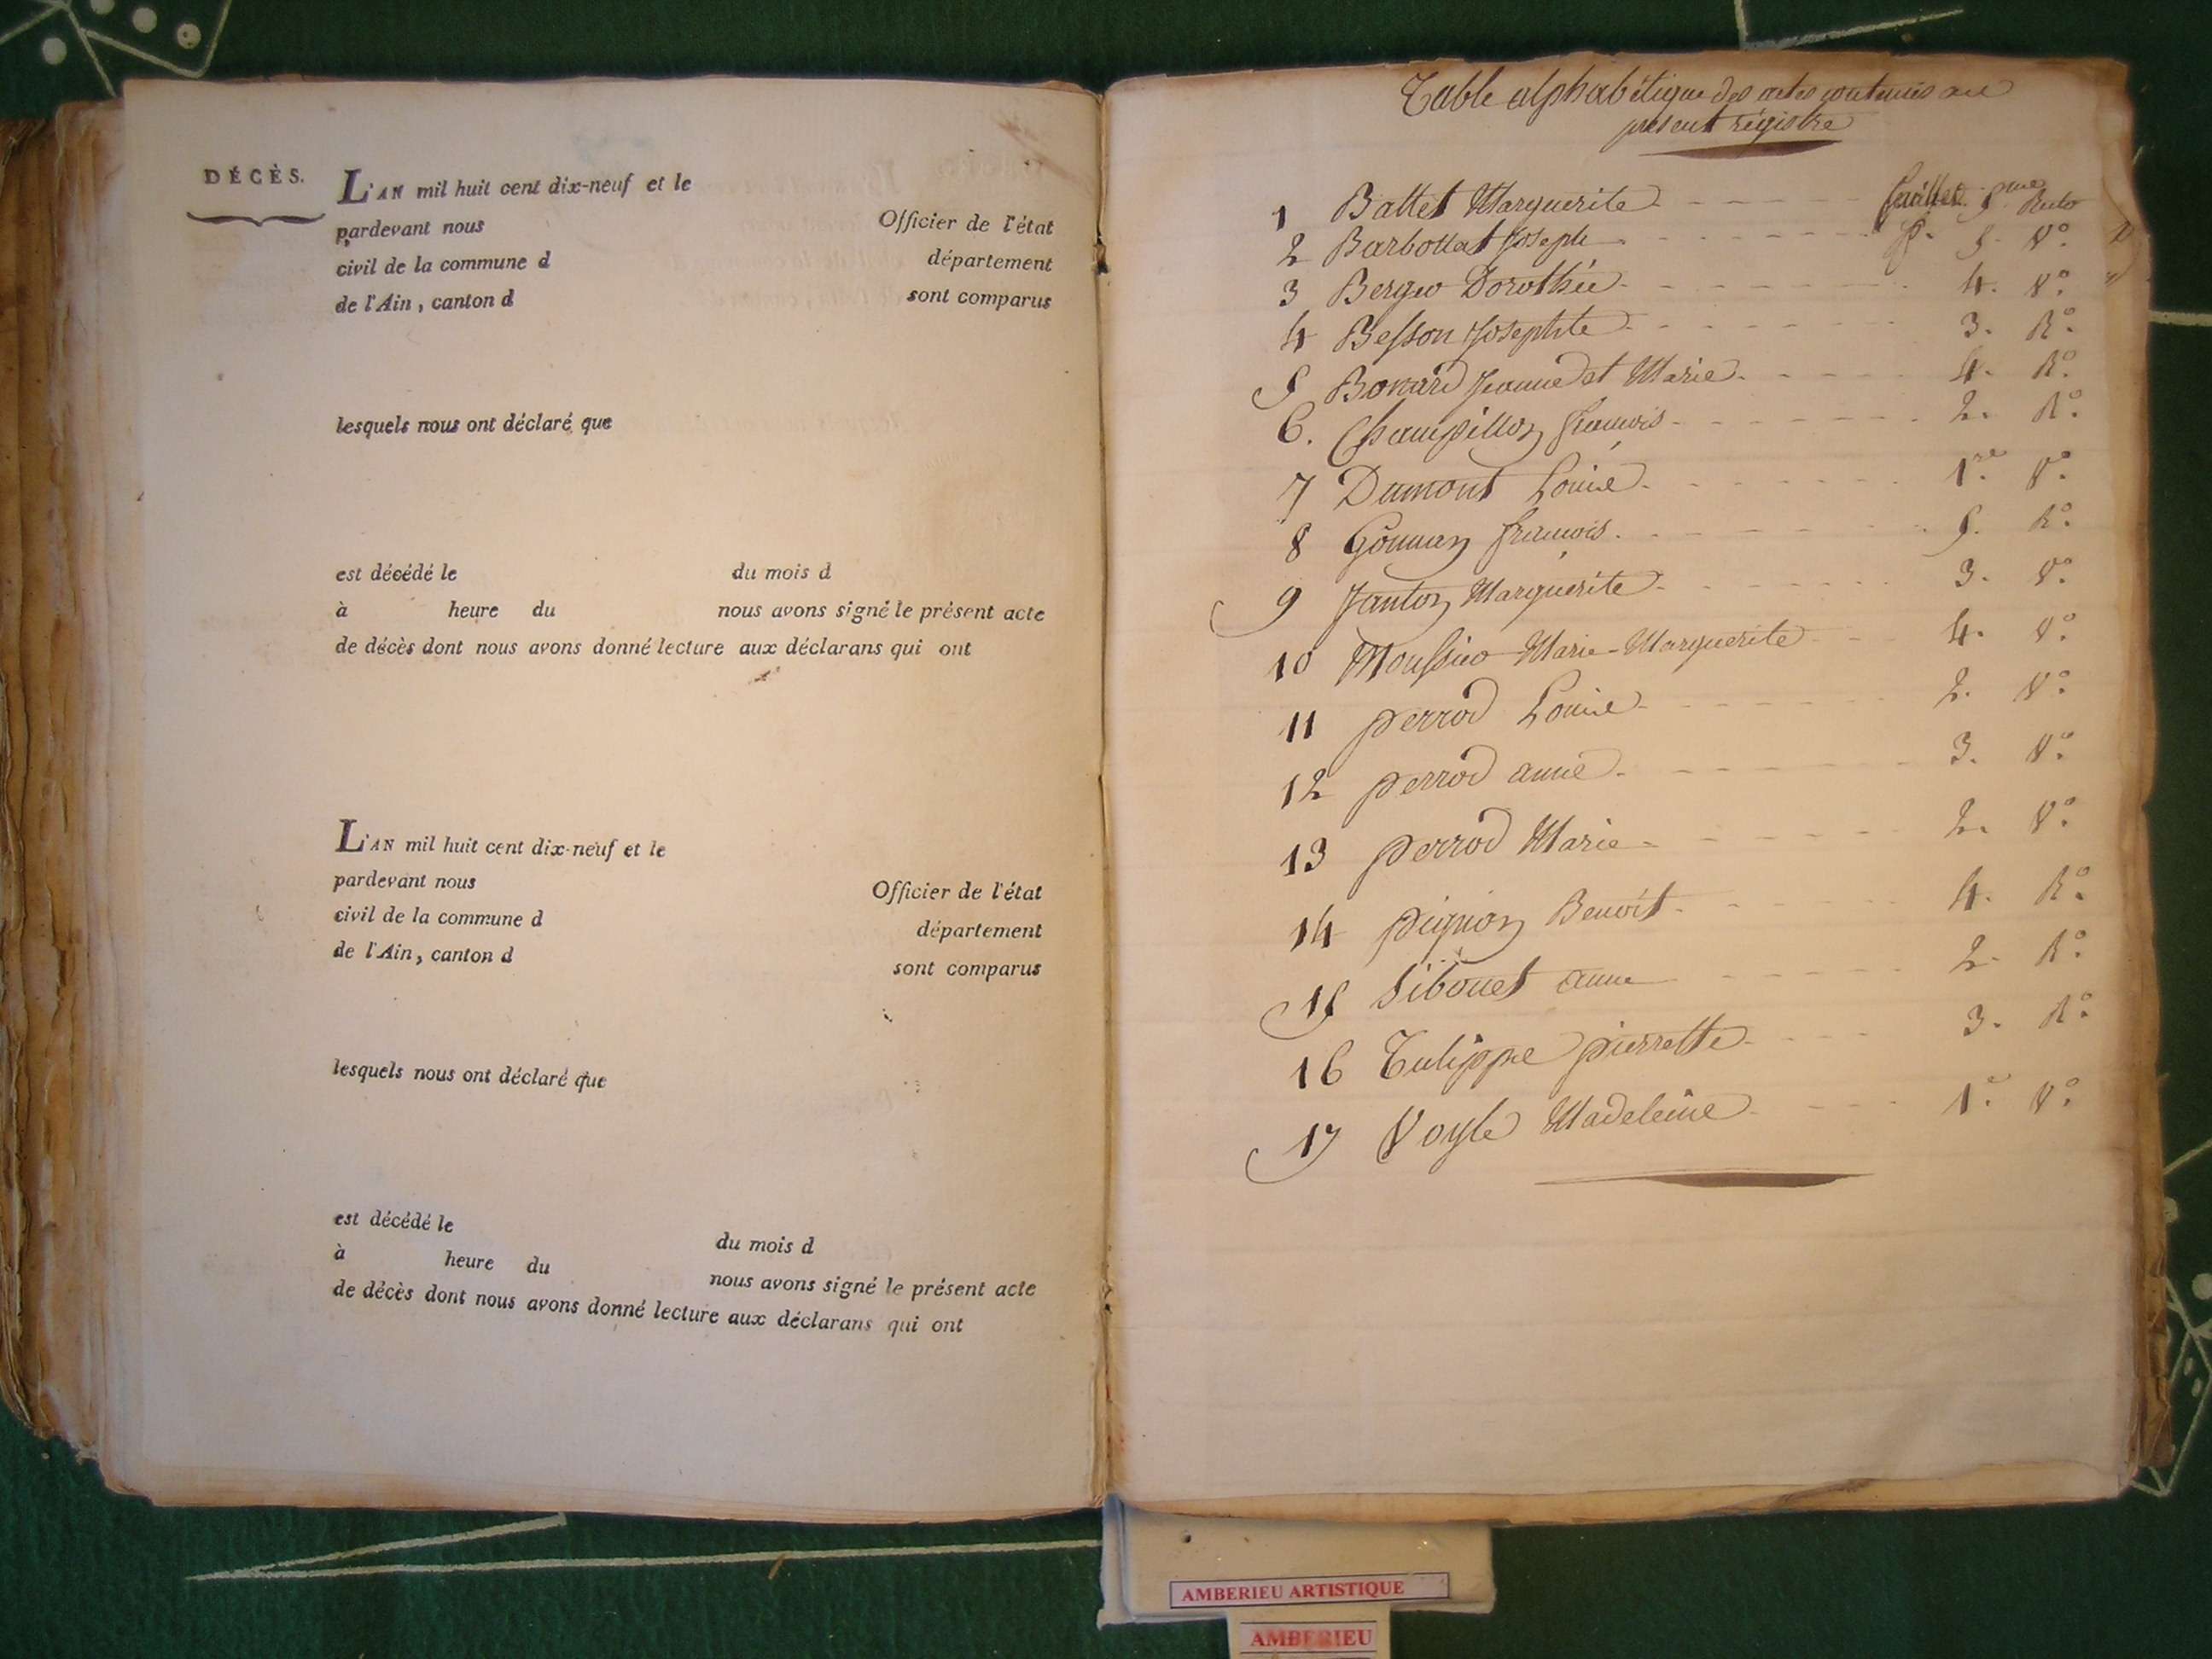 DÉCÈS.
L'AN mil huit cent dix-neuf et le
pardevant nous Officier de l'état
civil de la commune d département
de l'Ain, canton d sont comparus
lesquels nous ont déclaré que
est décédé le du mois d
à heure du nous avons signé le présent acte
de décès dont nous avons donné lecture aux déclarans qui ont
L'AN mil huit cent dix-neuf et le
pardevant nous Officier de l'état
civil de la commune d département
de l'Ain, canton d sont comparus
lesquels nous ont déclaré que
est décédé le du mois d
à heure du nous avons signé le présent acte
de décès dont nous avons donné lecture aux déclarans qui ont
Table alphabétique des actes contenus au
présent régistre
1 Battet Marguerite feuillet 5.me
2 Barbollat Joseph 5. Vo.
3 Dorothée 4. Vo.
4 Besson Josephte 3. Ro.
5 Bonard Jeanne et Marie 4. Ro.
6. Champillon francois 2. Ro.
7 Dumont Louise 1.re Vo.
8 Gounan francois 5. Ro.
9 Janton Marguerite 3. Vo.
10 Marie-Marguerite 4. Vo.
11 perrod Louise 2. Vo.
12 perrod anne 3. Vo.
13 perrod Marie 2. Vo.
14 pignion Benoit 4. Ro.
15 Sibouet anne 2. Ro.
16 Tulippe pierrette 3. Ro.
17 Voyle Madeleine 1.e Vo.
AMBERIEU ARTISTIQUE
AMBERIEU